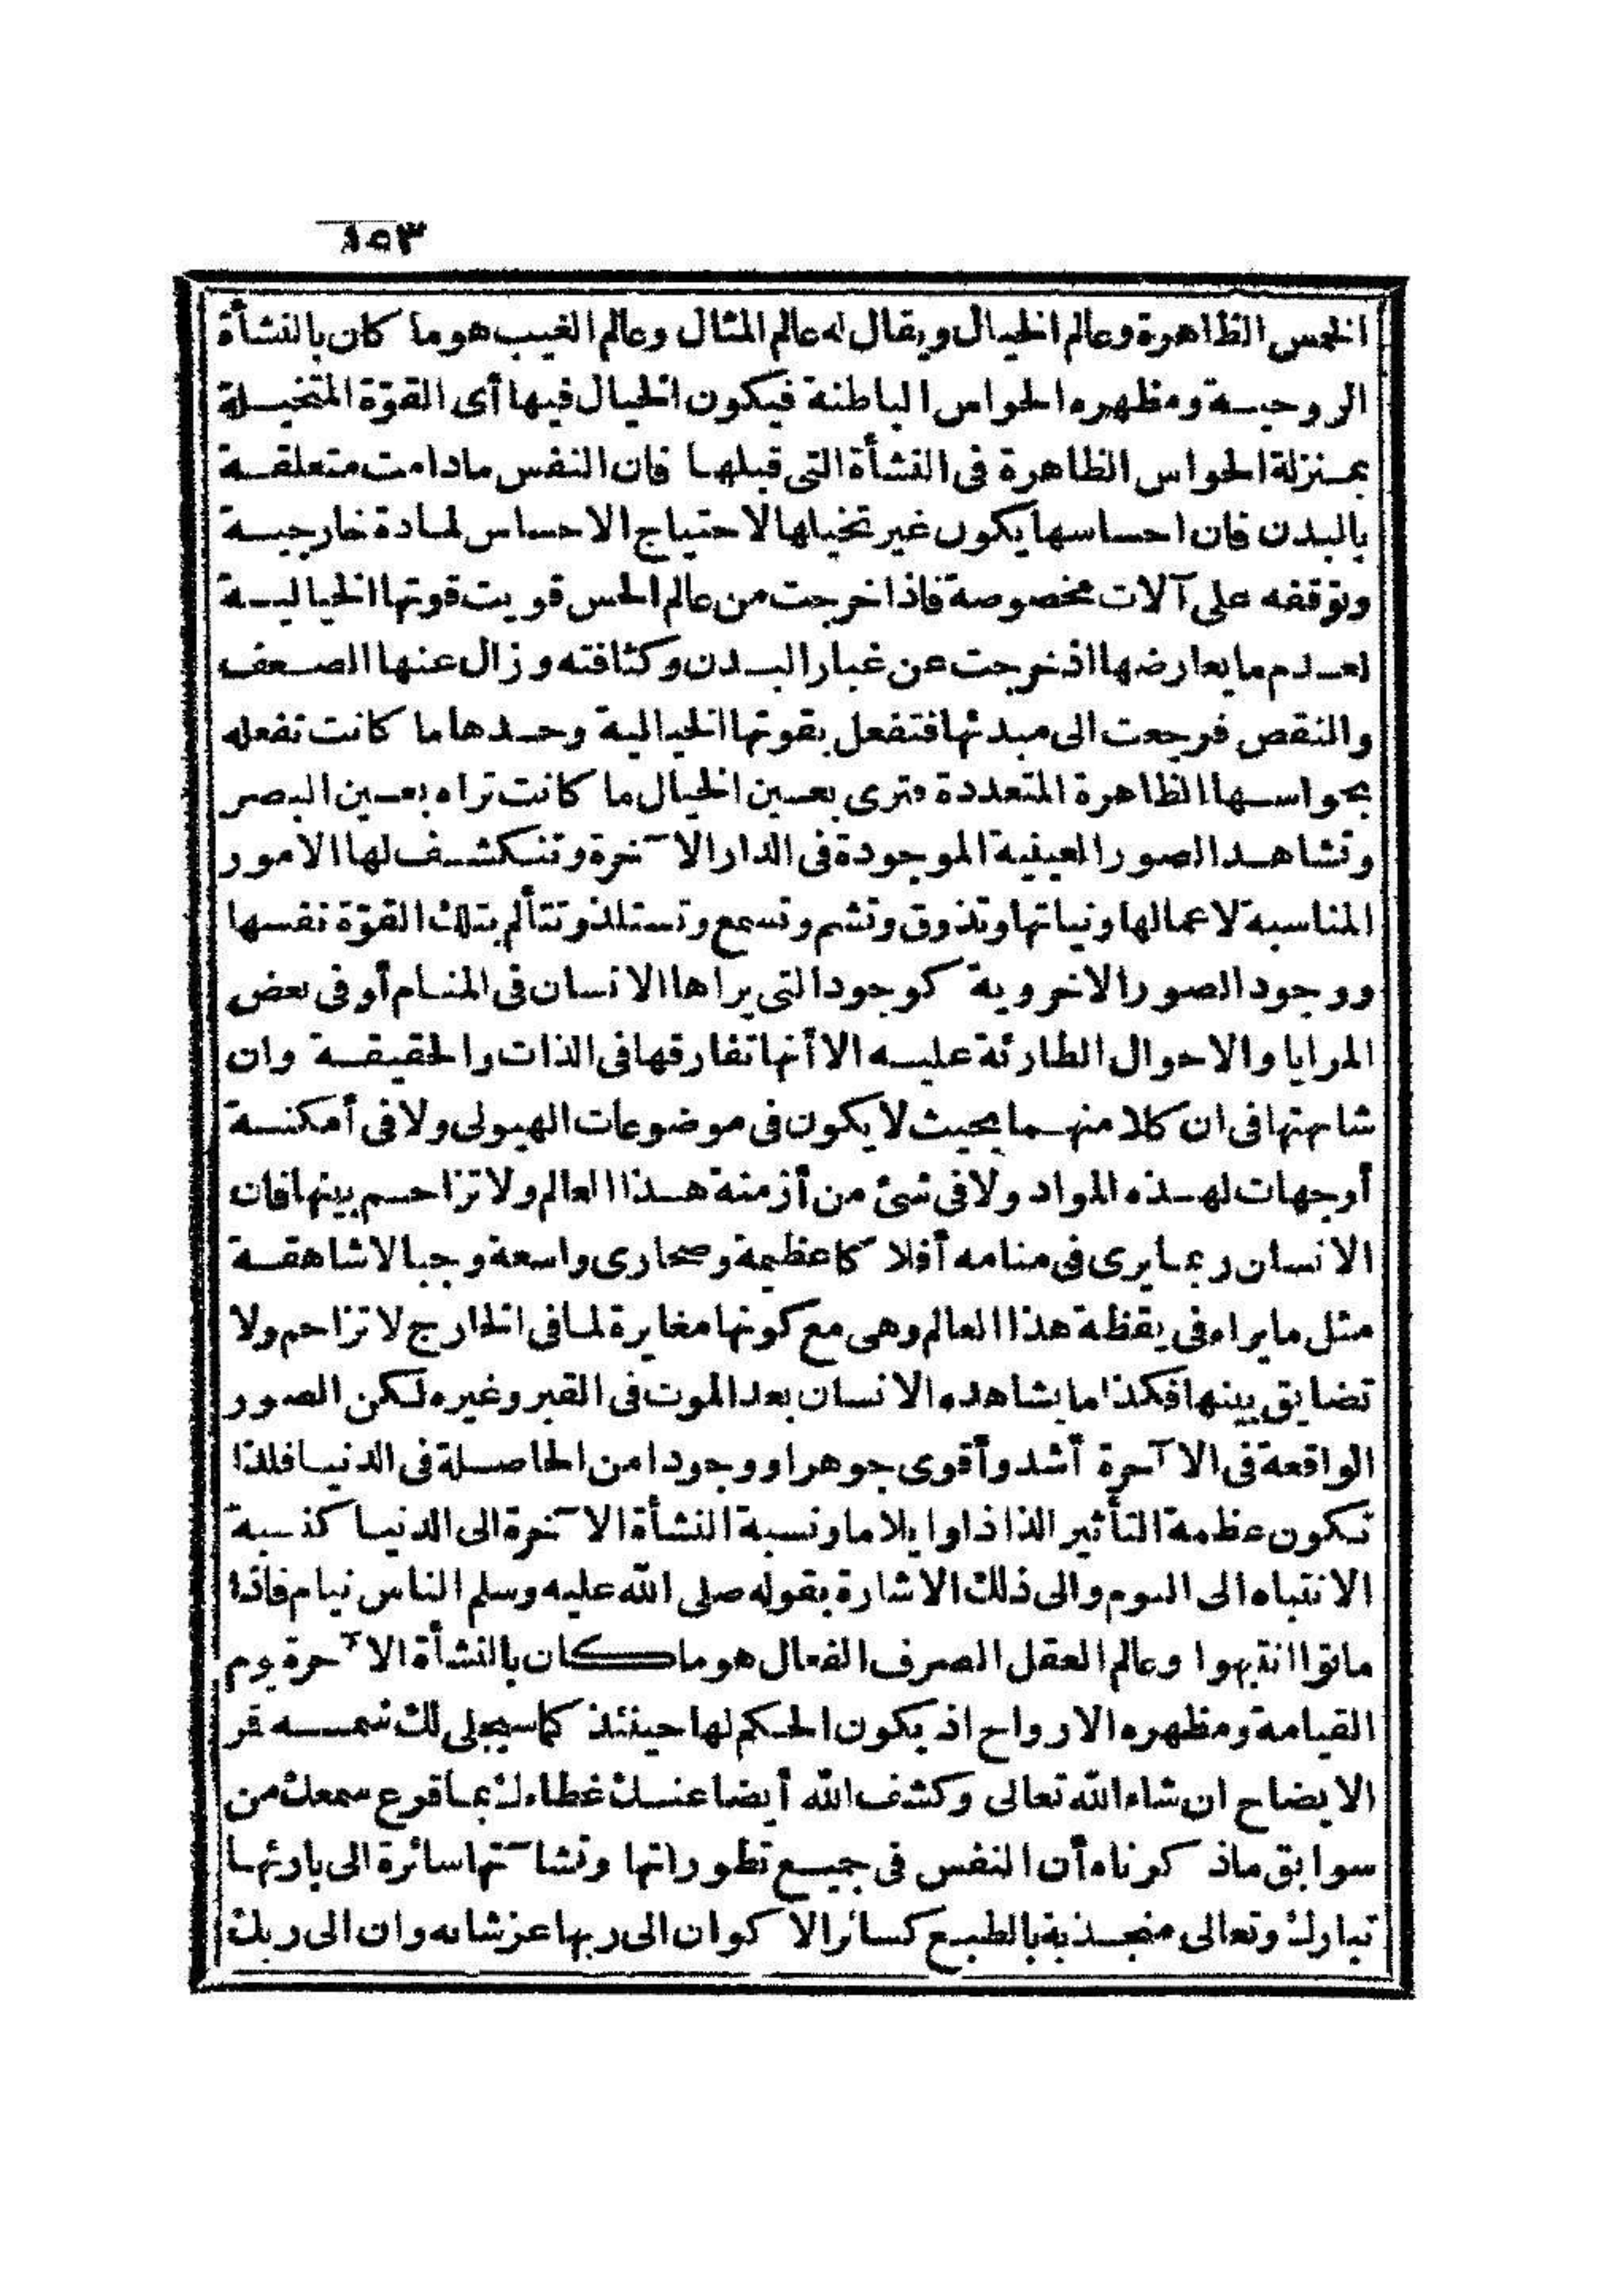 ١٥٣
الخمس الظاهرة وعالم الخيال ويقال له عالم المثال وعالم الغيب هو ما كان بالنشأة
الروحية ومظهره الحواس الباطنة فيكون الخيال فيها أى القوّة المتخيلة
بمنزلة الحواس الظاهرة فى النشأة التى قبلها فان النفس مادامت متعلقة
بالبدن فان احساسها يكون غير تخيلها لاحتياج الاحساس لمادة خارجية
وتوقفه على آلات مخصوصة فاذا خرجت من عالم الحس قويت قوتها الخيالية
لعدم ما يعارضها اذ خرجت عن غبار البدن وكثافته وزال عنها الضعف
والنقص فرجعت الى مبدئها فتفعل بقوتها الخيالية وحدها ما كانت تفعله
بحواسها الظاهرة المتعددة فترى بعين الخيال ما كانت تراه بعين البصر
وتشاهد الصور العينية الموجودة فى الدار الآخرة وتنكشف لها الامور
المناسبة لاعمالها ونياتها وتذوق وتشم وتسمع وتستلذ وتتألم بتلك القوّة نفسها
ووجود الصور الاخروية كوجود التى يراها الانسان فى المنام أو فى بعض
المرايا والاحوال الطارئة عليه الا أنها تفارقها فى الذات والحقيقة وان
شابهتها فى ان كلا منهما بحيث لا يكون فى موضوعات الهيولى ولا فى أمكنة
أوجهات لهذه المواد ولا فى شئ من أزمنة هذا العالم ولا تزاحم بينها فان
الانسان ربما يرى فى منامه أفلاكا عظيمة وصحارى واسعة وجبالا شاهقة
مثل ما يراه فى يقظة هذا العالم وهى مع كونها مغايرة لما فى الخارج لا تزاحم ولا
تضايق بينها فكذا ما يشاهده الانسان بعد الموت فى القبر وغيره لكن الصور
الواقعة فى الآخرة أشد وأقوى جوهرا ووجودا من الحاصلة فى الدنيا فلذا
تكون عظمة التأثير الذاذا وايلاما ونسبة النشأة الآخرة الى الدنيا كنسبة
الانتباه الى النوم والى ذلك الاشارة بقوله صلى الله عليه وسلم الناس نيام فاذا
ماتوا انتبهوا وعالم العقل الصرف الفعال هو ما كان بالنشأة الآخرة يوم
القيامة ومظهره الارواح اذ يكون الحكم لها حينئذ كما سيجلى لك شمسه قر
الايضاح ان شاء الله تعالى وكشف الله أيضا عنك غطاءك بما قرع سمعك من
سوابق ماذكرناه أن النفس فى جميع تطوراتها ونشآتها سائرة الى بارئها
تبارك وتعالى منجذبة بالطبع كسائر الاكوان الى ربها عز شانه وان الى ربك